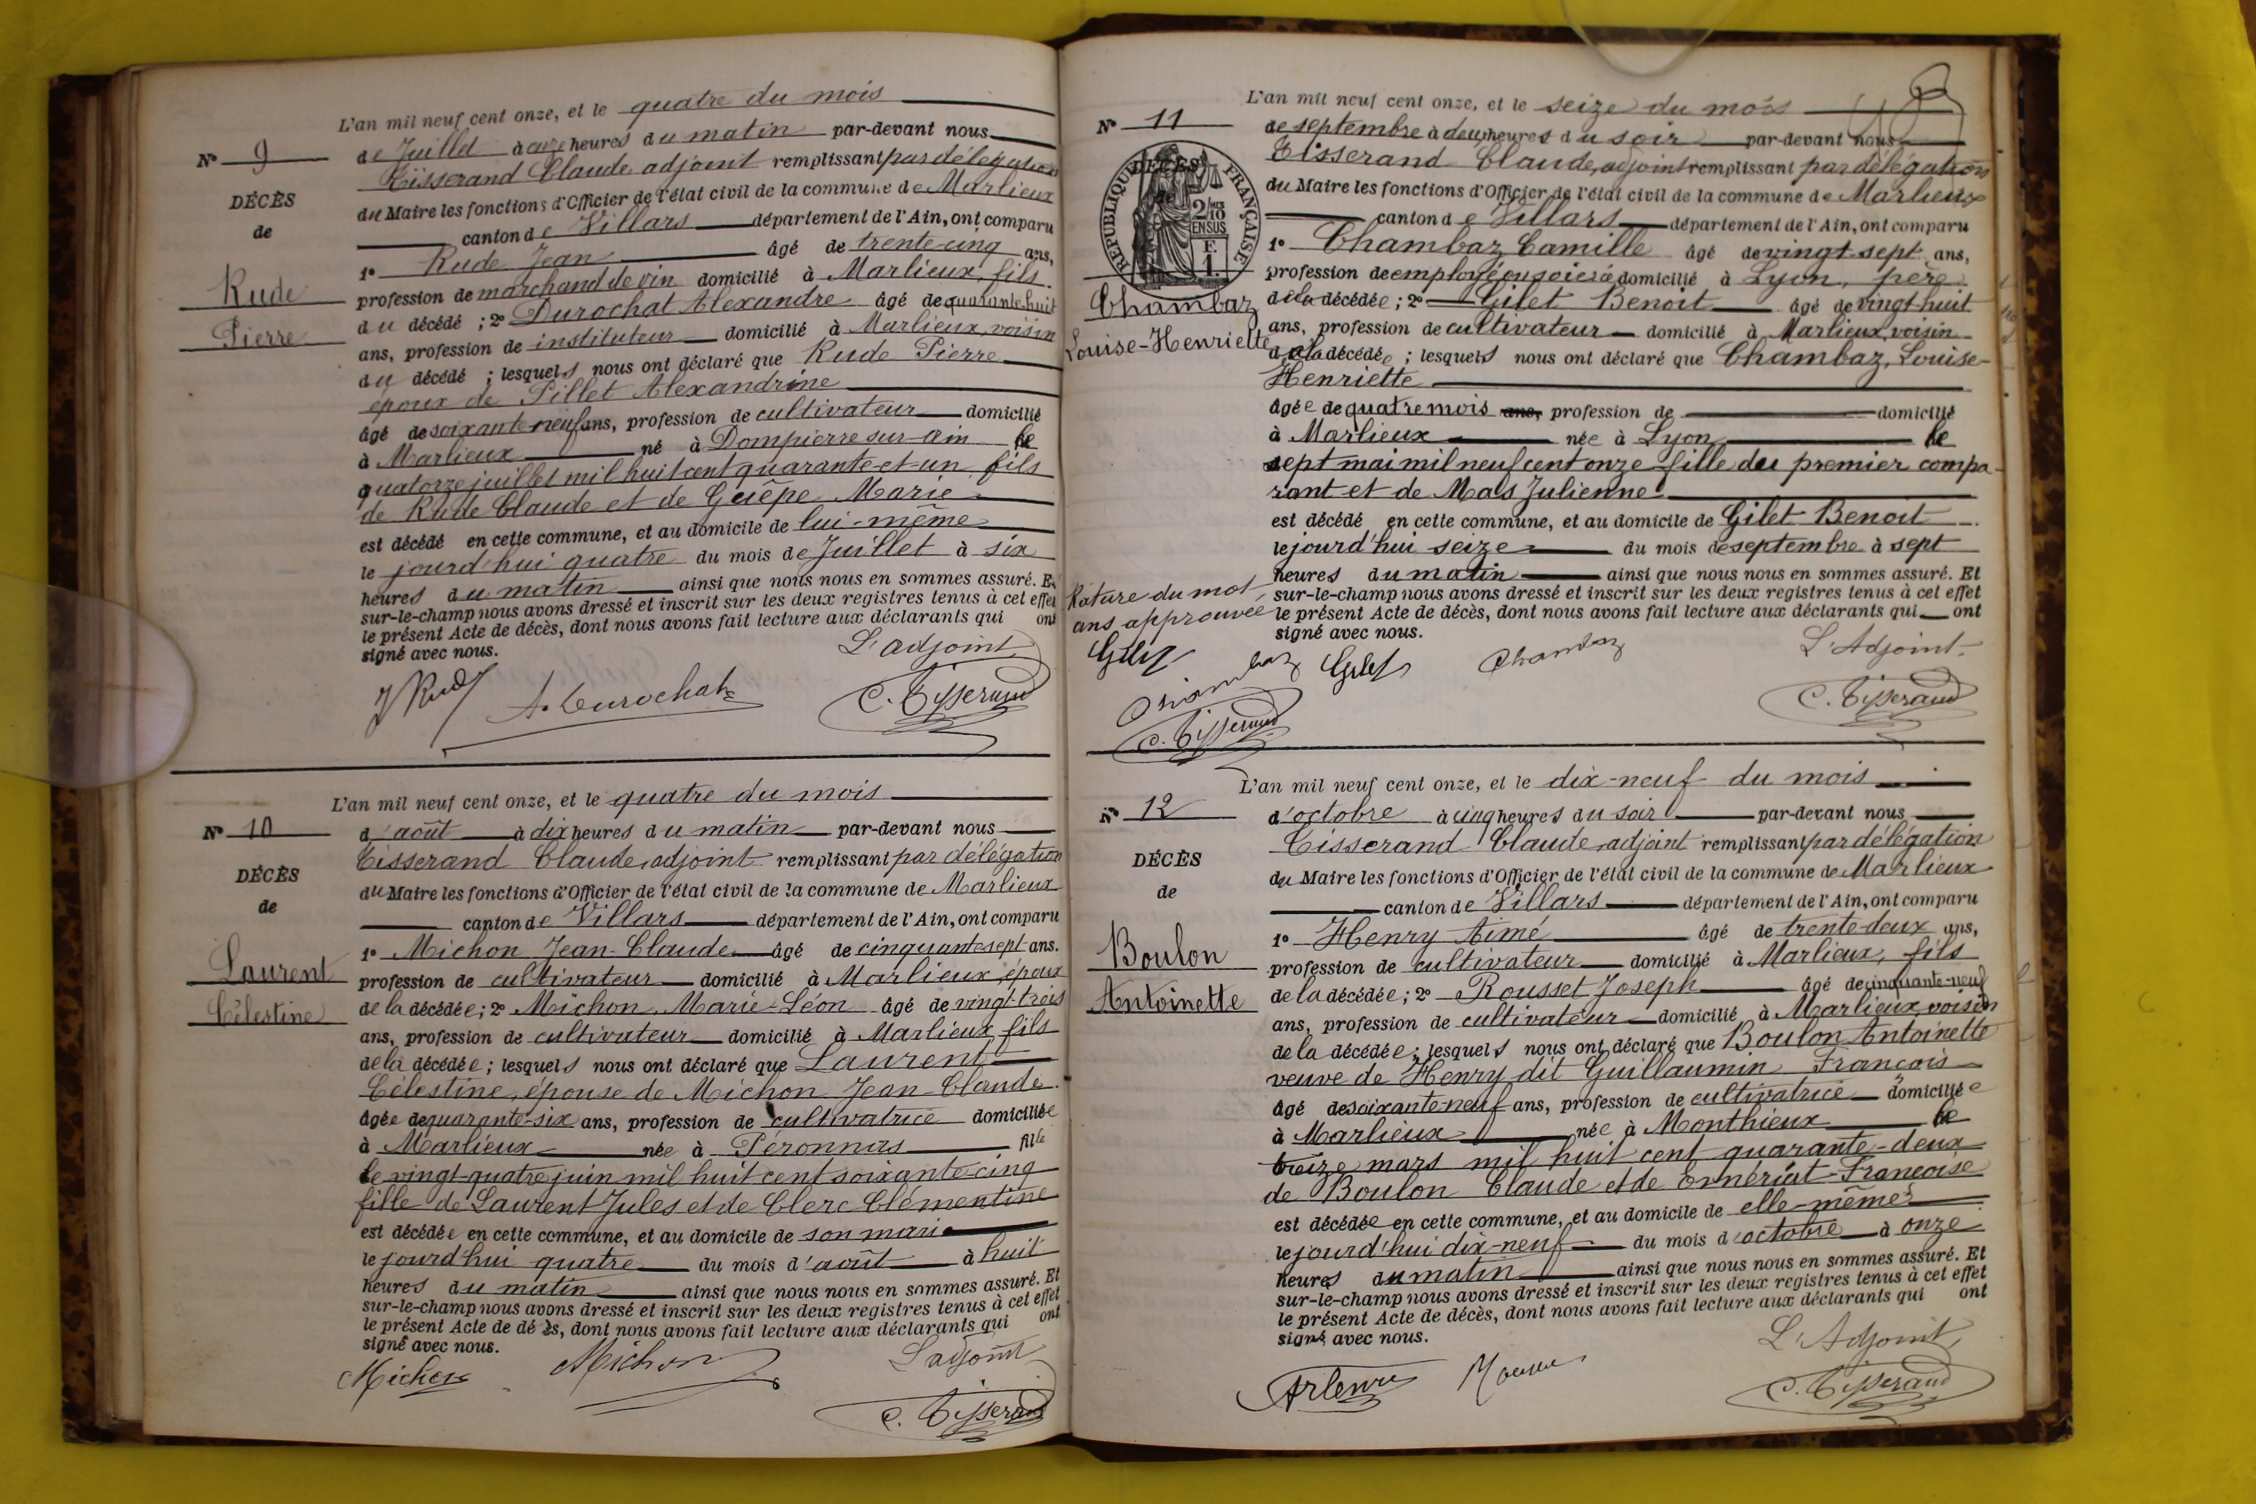 N° 9
DÉCÈS
de
Rude
Pierre
L'an mil neuf cent onze, et le quatre du mois
de Juillet à onze heures du matin par-devant nous
Tisserand Claude adjoint remplissant par délégation
du Maire les fonctions d'Officier de l'état civil de la commune de Marlieux
canton de Villars département de l'Ain, ont comparu
1° Rude Jean âgé de trente-cinq ans,
profession de marchand de vin domicilié à Marlieux, fils
du décédé ; 2° Durochat Alexandre âgé de quarante huit
ans, profession de instituteur domicilié à Marlieux, voisin
du décédé ; lesquels nous ont déclaré que Rude Pierre
époux de Pillet Alexandrine
âgé de soixante-neuf ans, profession de cultivateur domicilié
à Marlieux né à Dompierre sur-Ain le
quatorze juillet mil huit cent quarante-et-un fils
de Rude Claude et de Guêpe Marie
est décédé en cette commune, et au domicile de lui-même
le jourd'hui quatre du mois de Juillet à six
heures du matin ainsi que nous nous en sommes assuré. Et
sur-le-champ nous avons dressé et inscrit sur les deux registres tenus à cet effet
le présent Acte de décès, dont nous avons fait lecture aux déclarants qui ont
signé avec nous.
L'adjoint
J Rude A. Durochat C. Tisserand
N° 10
DÉCÈS
de
Laurent
Célestine
L'an mil neuf cent onze, et le quatre du mois
d'août à dix heures du matin par-devant nous
Tisserand Claude, adjoint remplissant par délégation
du Maire les fonctions d'Officier de l'état civil de la commune de Marlieux
canton de Villars département de l'Ain, ont comparu
1° Michon Jean-Claude âgé de cinquante-sept ans.
profession de cultivateur domicilié à Marlieux, époux
de la décédée ; 2° Michon, Marie-Léon âgé de vingt-trois
ans, profession de cultivateur domicilié à Marlieux, fils
de la décédée ; lesquels nous ont déclaré que Laurent
Célestine, épouse de Michon Jean-Claude
âgée de quarante-six ans, profession de cultivatrice domiciliée
à Marlieux née à Péronnas fille
le vingt-quatre juin mil huit cent soixante cinq
fille de Laurent Jules et de Clerc Clémentine
est décédée en cette commune, et au domicile de son mari
le jourd'hui quatre du mois d'août à huit
heures du matin ainsi que nous nous en sommes assuré. Et
sur-le-champ nous avons dressé et inscrit sur les deux registres tenus à cet effet
le présent Acte de décès, dont nous avons fait lecture aux déclarants qui ont
signé avec nous.
L'adjoint
Michon Michon C. Tisserand
N° 11
DÉCÈS
de
RÉPUBLIQUE FRANÇAISE
2/10 EN SUS
F.
1.
Chambaz
Louise-Henriette
L'an mil neuf cent onze, et le seize du mois
de septembre à deux heures du soir par-devant nous
Tisserand Claude, adjoint remplissant par délégation
du Maire les fonctions d'Officier de l'état civil de la commune de Marlieux
canton de Villars département de l'Ain, ont comparu
1° Chambaz Camille âgé de vingt-sept ans,
profession de employé domicilié à Lyon, père
de la décédée ; 2° Gilet Benoit âgé de vingt huit
ans, profession de cultivateur domicilié à Marlieux, voisin
de la décédée ; lesquels nous ont déclaré que Chambaz, Louise-
Henriette
âgée de quatre mois ans, profession de domicilié
à Marlieux née à Lyon le
sept mai mil neuf cent onze fille du premier compa-
rant et de Mas Julienne
est décédé en cette commune, et au domicile de Gilet Benoit
le jourd'hui seize du mois de septembre à sept
heures du matin ainsi que nous nous en sommes assuré. Et
sur-le-champ nous avons dressé et inscrit sur les deux registres tenus à cet effet
le présent Acte de décès, dont nous avons fait lecture aux déclarants qui ont
signé avec nous.
Rature du mot
ans approuvée
Gilet Chambaz
C. Tisserand
Gilet Chambaz L'Adjoint
C. Tisserand
N° 12
DÉCÈS
de
Boulon
Antoinette
L'an mil neuf cent onze, et le dix-neuf du mois
d'octobre à cinq heures du soir par-devant nous
Tisserand Claude, adjoint remplissant par délégation
du Maire les fonctions d'Officier de l'état civil de la commune de Marlieux
canton de Villars département de l'Ain, ont comparu
1° Henry Aimé âgé de trente-deux ans,
profession de cultivateur domicilié à Marlieux, fils
de la décédée ; 2° Rousset Joseph âgé de cinquante-neuf
ans, profession de cultivateur domicilié à Marlieux, voisin
de la décédée ; lesquels nous ont déclaré que Boulon Antoinette
veuve de Henry dit Guillaumin François
âgé de soixante-neuf ans, profession de cultivatrice domiciliée
à Marlieux née à Monthieux le
treize mars mil huit cent quarante-deux
de Boulon Claude et de Françoise
est décédée en cette commune, et au domicile de elle-même
le jourd'hui dix-neuf du mois d'octobre à onze
heures du matin ainsi que nous nous en sommes assuré. Et
sur-le-champ nous avons dressé et inscrit sur les deux registres tenus à cet effet
le présent Acte de décès, dont nous avons fait lecture aux déclarants qui ont
signé avec nous.
L'Adjoint
C. Tisserand